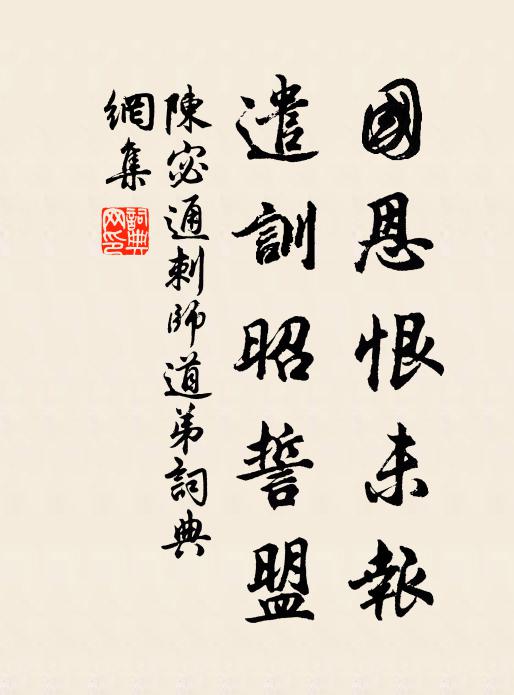 國恩恨未報
遣訓昭誓盟
陳宓通刺師道弟詞典
網集
詞典
网印